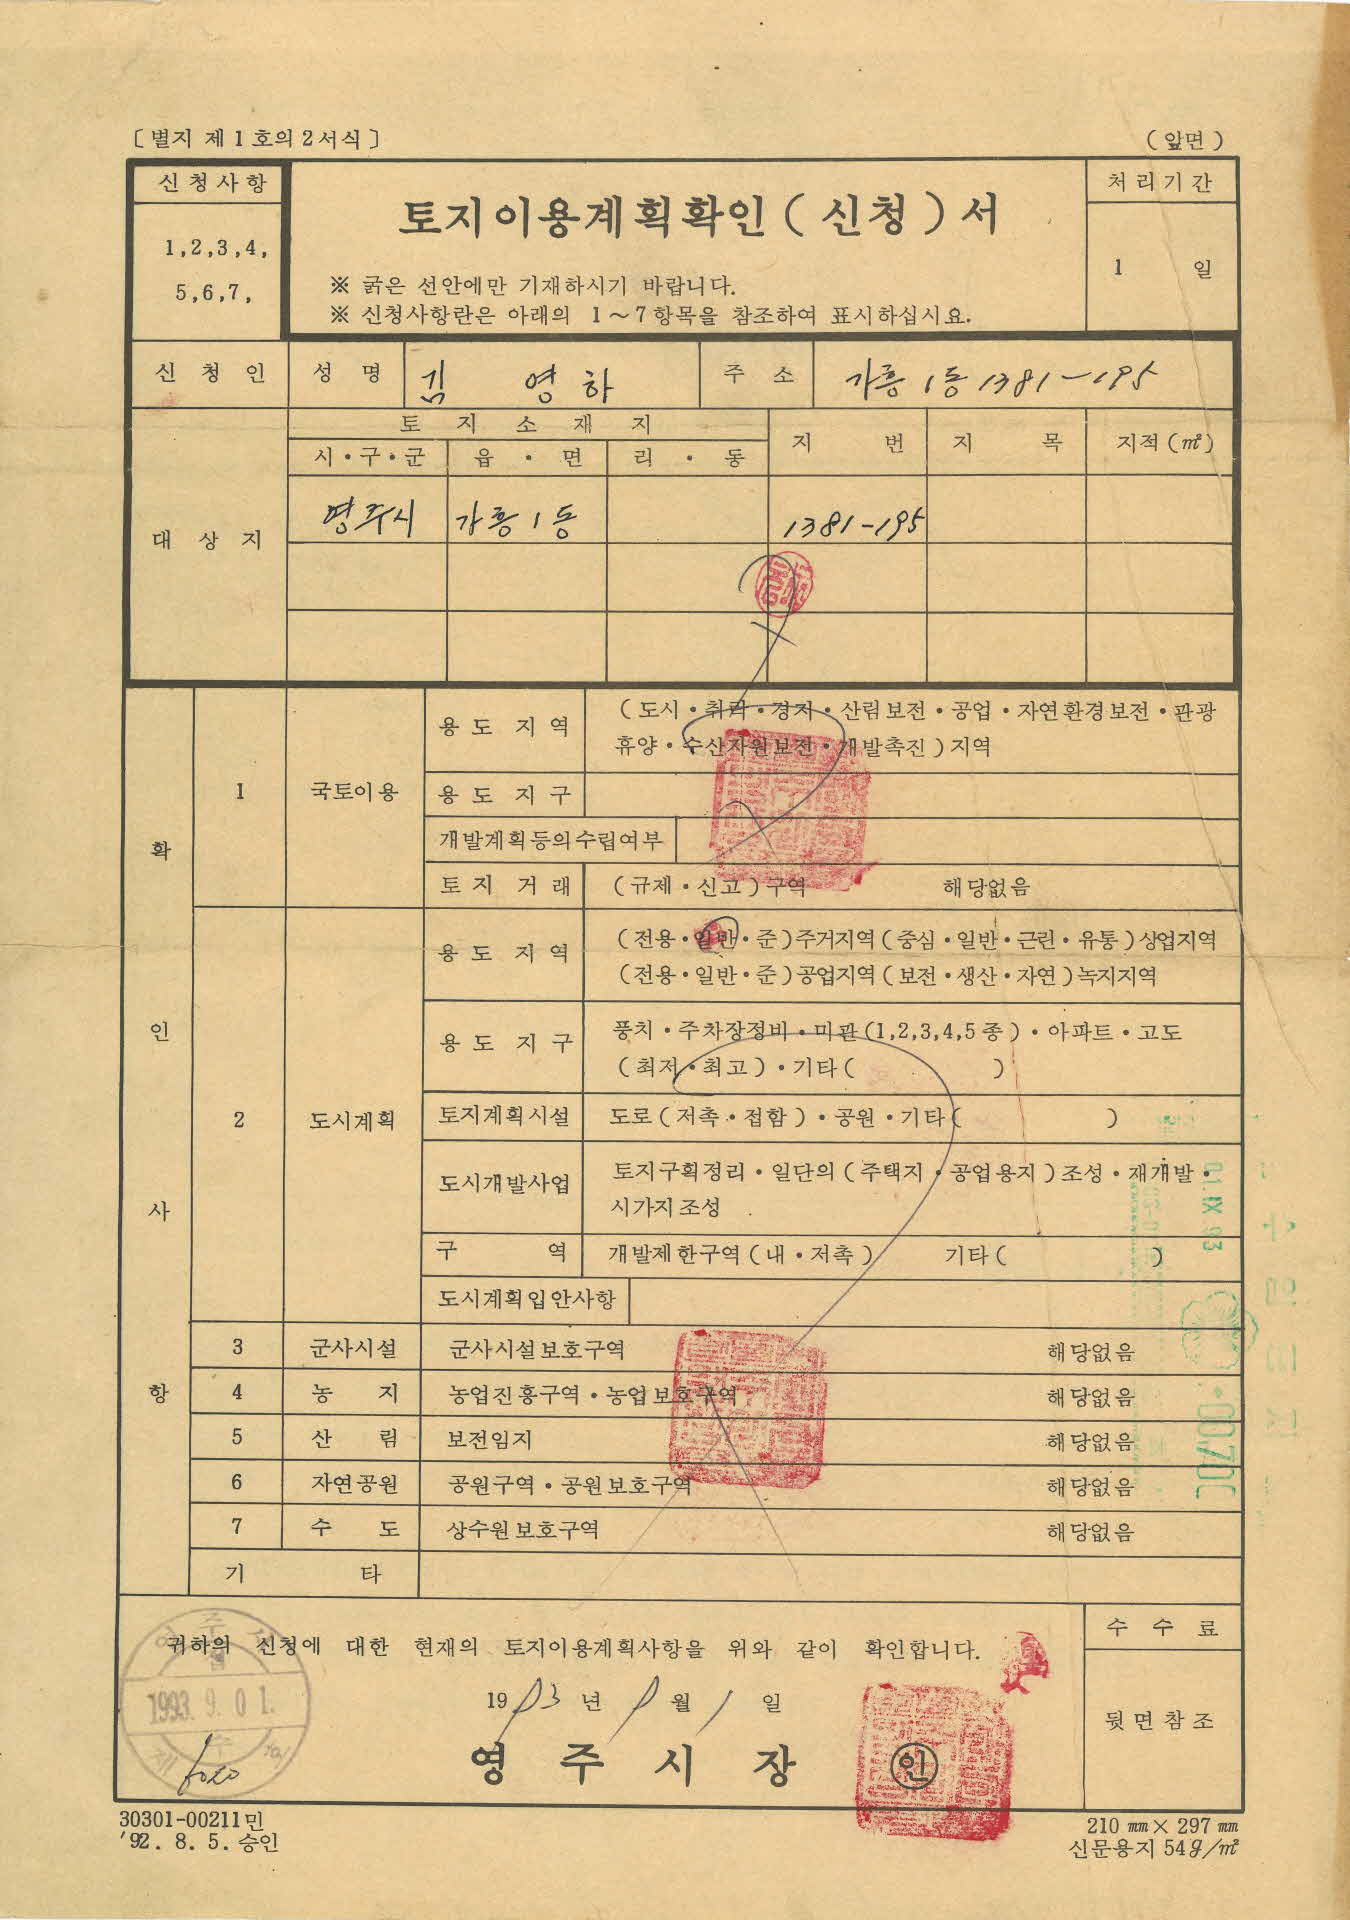 [별지 제1호의2서식]
(앞면)
신청사항
1,2,3,4,
5,6,7,
토지이용계획확인(신청)서
※ 굵은 선안에만 기재하시기 바랍니다.
※ 신청사항란은 아래의 1～7항목을 참조하여 표시하십시요.
처리기간
1 일
신청인 성명 김영하 주소 가흥1동 1381-195
대상지
토지소재지
시·구·군 읍·면 리·동 지번 지목 지적(㎡)
영주시 가흥1동 1381-195
확인사항
1 국토이용
용도지역 (도시·취락·경지·산림보전·공업·자연환경보전·관광
휴양·수산자원보전·개발촉진)지역
용도지구
개발계획등의수립여부
토지거래 (규제·신고)구역 해당없음
2 도시계획
용도지역 (전용·일반·준)주거지역(중심·일반·근린·유통)상업지역
(전용·일반·준)공업지역(보전·생산·자연)녹지지역
용도지구 풍치·주차장정비·미관(1,2,3,4,5종)·아파트·고도
(최저·최고)·기타( )
토지계획시설 도로(저촉·접함)·공원·기타( )
도시개발사업 토지구획정리·일단의(주택지·공업용지)조성·재개발·
시가지조성
구역 개발제한구역(내·저촉) 기타( )
도시계획입안사항
3 군사시설 군사시설보호구역 해당없음
4 농지 농업진흥구역·농업보호구역 해당없음
5 산림 보전임지 해당없음
6 자연공원 공원구역·공원보호구역 해당없음
7 수도 상수원보호구역 해당없음
기타
01.IX.93
귀하의 신청에 대한 현재의 토지이용계획사항을 위와 같이 확인합니다.
1993년 9월 1일
영주시장 인
수수료
뒷면참조
1993. 9. 01.
30301-00211민
'92. 8. 5. 승인
210㎜×297㎜
신문용지 54g/㎡